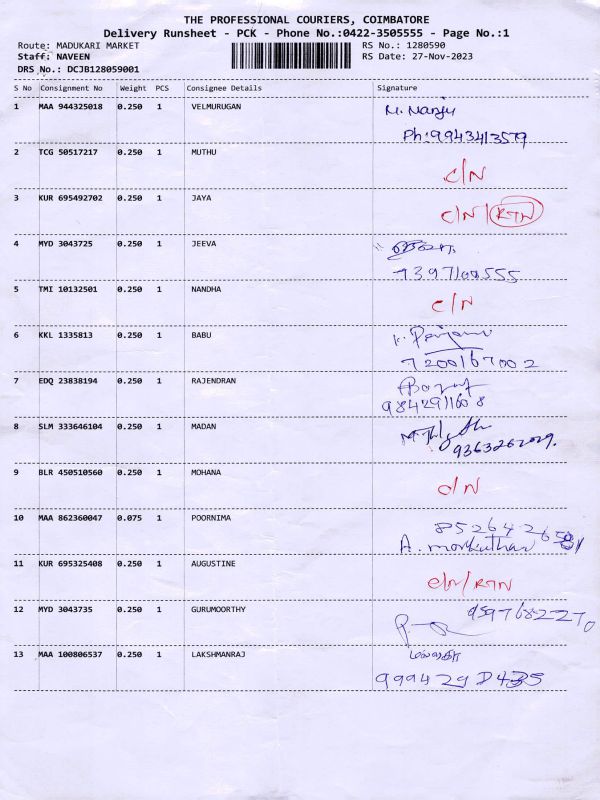 THE PROFESSIONAL COURIERS, COIMBATORE
Delivery Runsheet - PCK - Phone No.:0422-3505555 - Page No.:1
Route: MADUKARI MARKET RS No.: 1280590
Staff: NAVEEN RS Date: 27-Nov-2023
DRS No.: DCJB128059001
S No Consignment No Weight PCS Consignee Details Signature
1 MAA 944325018 0.250 1 VELMURUGAN M. Manju
Ph:9943413579
2 TCG 50517217 0.250 1 MUTHU
C/N
3 KUR 695492702 0.250 1 JAYA
C/N/RTN
4 MYD 3043725 0.250 1 JEEVA
9397100555
5 TMI 10132501 0.250 1 NANDHA
C/N
6 KKL 1335813 0.250 1 BABU
7200167002
7 EDQ 23838194 0.250 1 RAJENDRAN
9842911608
8 SLM 333646104 0.250 1 MADAN
9 BLR 450510560 0.250 1 MOHANA
C/N
10 MAA 862360047 0.075 1 POORNIMA
A.
11 KUR 695325408 0.250 1 AUGUSTINE
C/N/RTN
12 MYD 3043735 0.250 1 GURUMOORTHY 9597682270
13 MAA 100806537 0.250 1 LAKSHMANRAJ